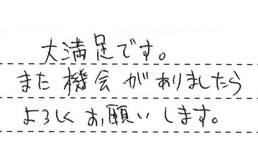 大満足です。
また機会がありましたら
よろしくお願いします。